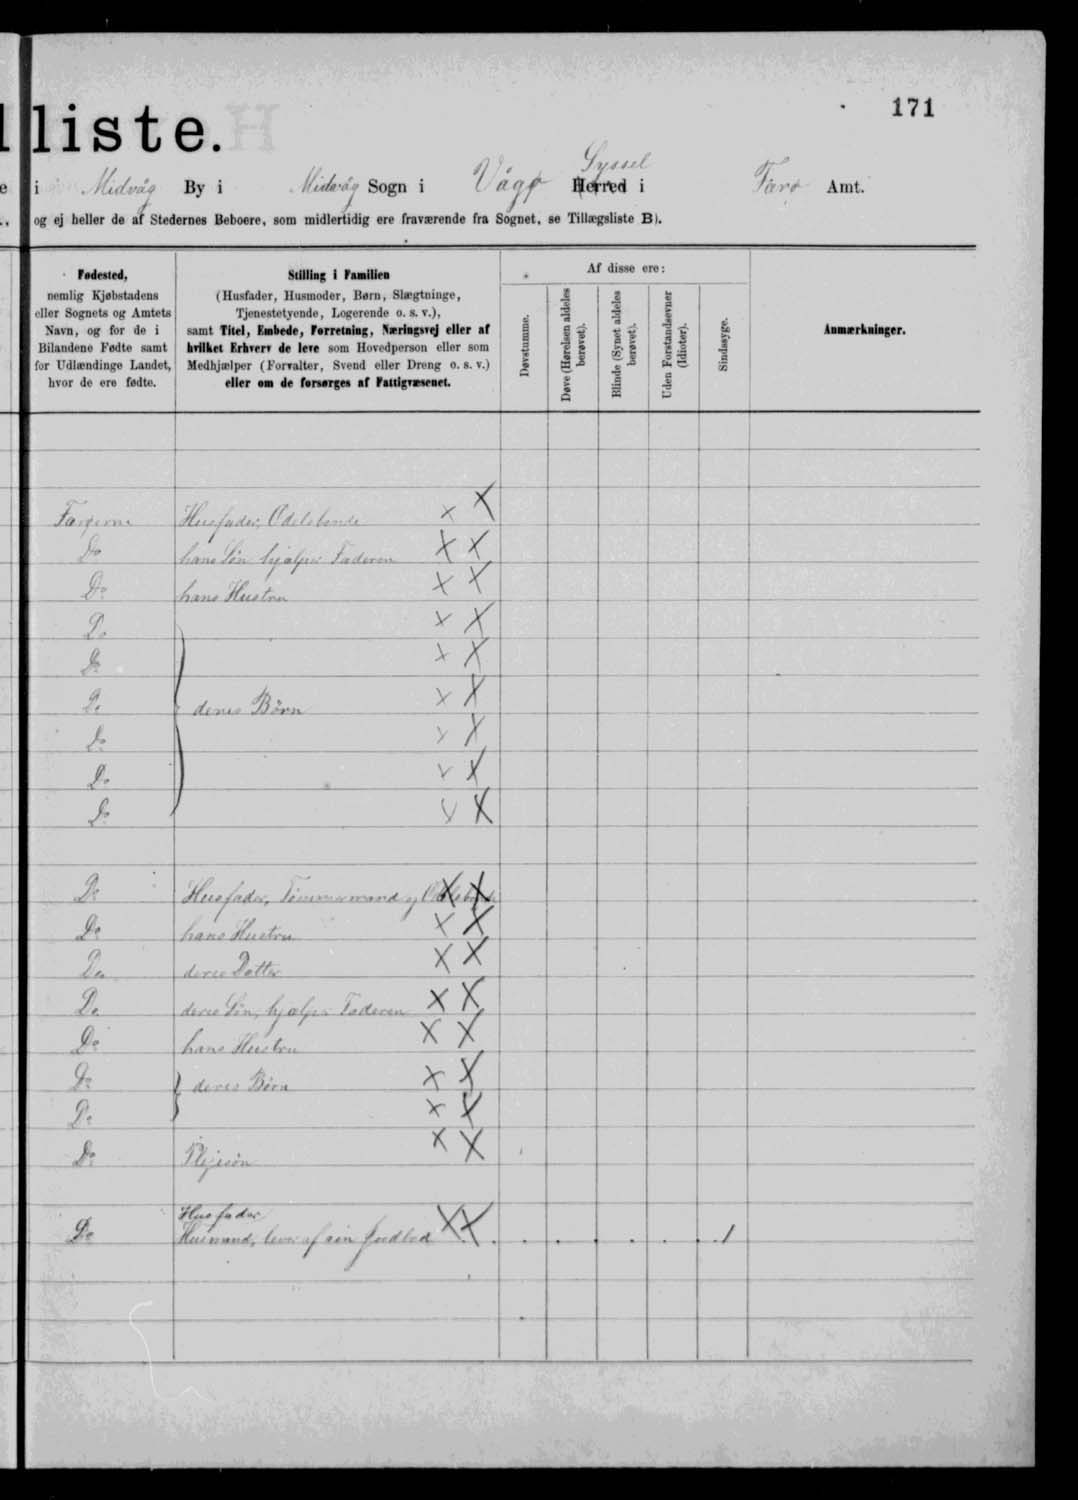 171
lliste.
e i Midvåg By i Midvåg Sogn i Vågø Herred i Færø Amt.
Syssel
og ej heller de af Stedernes Beboere, som midlertidig ere fraværende fra Sognet, se Tillægsliste B).
Fødested,
nemlig Kjøbstadens
eller Sognets og Amtets
Navn, og for de i
Bilandene Fødte samt
for Udlændinge Landet,
hvor de ere fødte.
Stilling i Familien
(Husfader, Husmoder, Børn, Slægtninge,
Tjenestetyende, Logerende o. s. v.),
samt Titel, Embede, Forretning, Næringsvej eller af
hvilket Erhverv de leve som Hovedperson eller som
Medhjælper (Forvalter, Svend eller Dreng o. s. v.)
eller om de forsørges af Fattigvæsenet.
Af disse ere:
Døvstumme.
Døve (Hørelsen aldeles
berøvet).
Blinde (Synet aldeles
berøvet).
Uden Forstandsevner
(Idioter).
Sindssyge.
Anmærkninger.
Færøerne Husfader, Odelsbonde x x
Do hans Søn hjælper Faderen x x
Do hans Hustru x x
Do x x
Do x x
Do deres Børn x x
Do x x
Do x x
Do x x
Do Husfader, Tømmermand og Odelsbonde x x
Do hans Hustru x x
Do deres Datter x x
Do deres Søn, hjælper Faderen x x
Do hans Hustru x x
Do deres Børn x x
Do x x
Do Plejesøn x x
Husfader
Do Husmand, lever af sin Jordlod x x . . . . . . 1